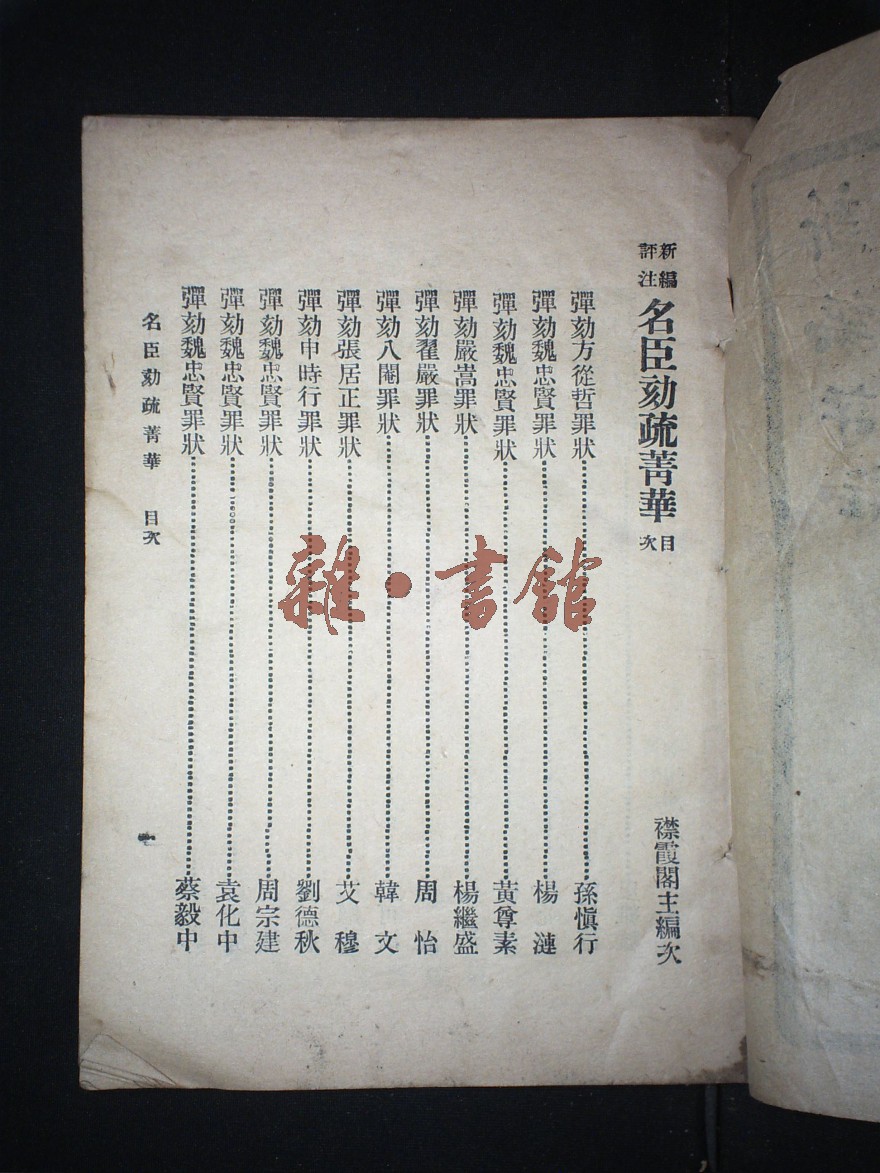 新編評注名臣劾疏菁華目次
襟霞閣主編次
彈劾方從哲罪狀 孫愼行
彈劾魏忠賢罪狀 楊漣
彈劾魏忠賢罪狀 黃尊素
彈劾嚴嵩罪狀 楊繼盛
彈劾翟嚴罪狀 周怡
彈劾八閹罪狀 韓文
彈劾張居正罪狀 艾穆
彈劾申時行罪狀 劉德秋
彈劾魏忠賢罪狀 周宗建
彈劾魏忠賢罪狀 袁化中
彈劾魏忠賢罪狀 蔡毅中
名臣劾疏菁華 目次 一
雜·書館